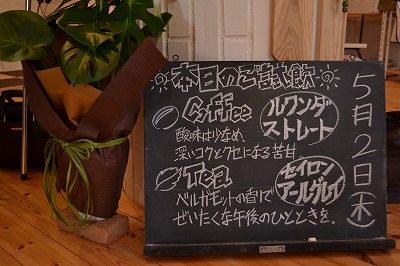 本日のご試飲
Coffee
ルワンダ
ストレート
酸味は少なめ
深いコクとクセになる苦甘
Tea
セイロン
アールグレイ
ベルガモットの香りで
ぜいたくな午後のひとときを.
5月2日(木)